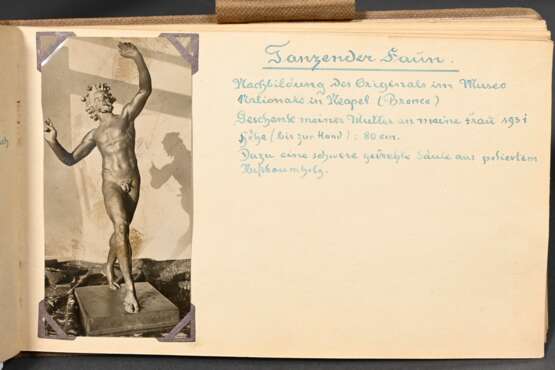 Tanzender Faun.
Nachbildung des Originals im Museo
Nationale in Neapel (Bronce)
Geschenk meiner Mutter an meine Frau 1931
Höhe (bis zur Hand): 80 cm.
Dazu eine schwere gedrehte Säule aus poliertem
Nußbaumholz.